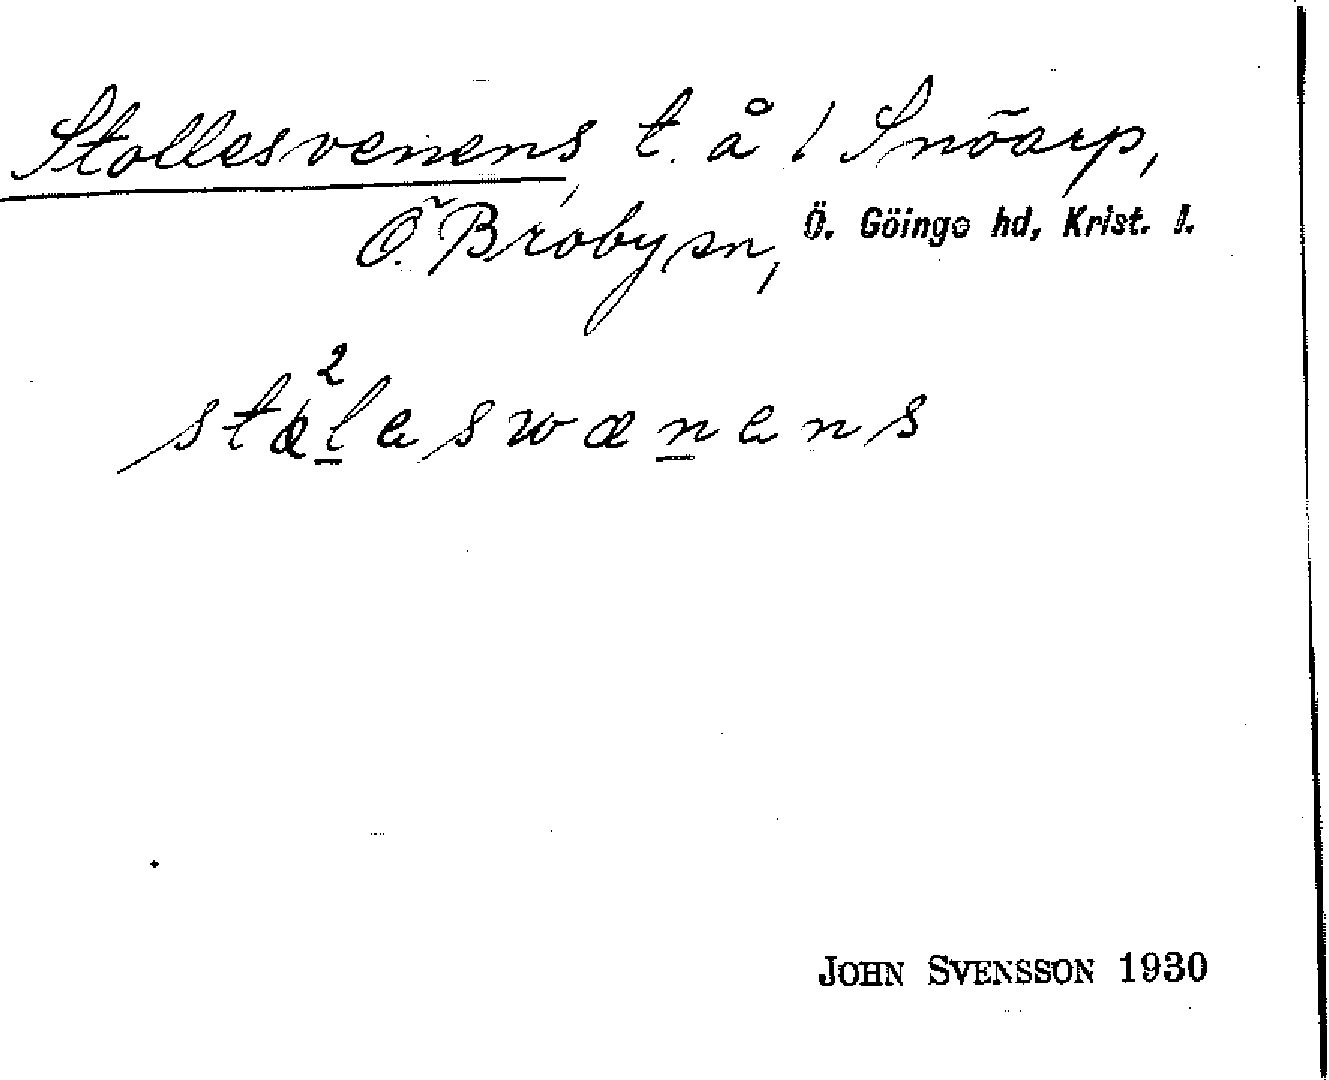 Stollesvenens, t. å / Snöarp,
Ö. Broby sn, Ö. Göinge hd, Krist. l.
stæ²leswænens
JOHN SVENSSON 1930